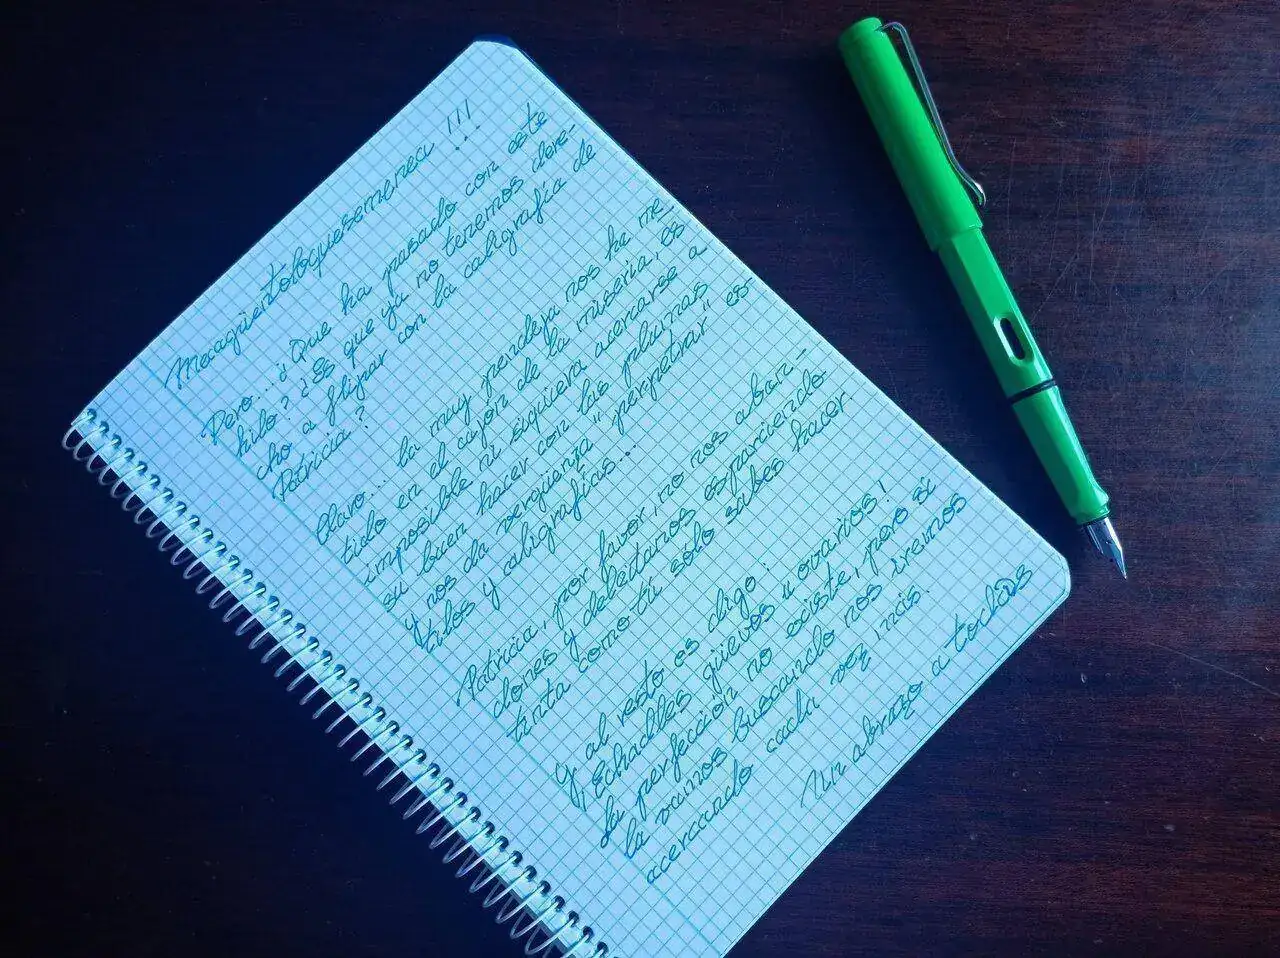 Meaquientoloquesemenea!!!
Pero...¿Que ha pasado con este
hilo? ¿Es que ya no tenemos dere-
cho a flipar con la caligrafía de
Patricia?
Claro... la muy pendeja nos ha me-
tido en el cajon de la miseria, es
imposible ni siquiera acercarse a
su buen hacer con las plumas
y nos da verguenza "perpetrar" es-
tilos y caligrafias...
Patricia, por favor, no nos aban-
dones y deleitanos esparciendo
tinta como tú solo sabes hacer
Y al resto os digo:
¡Echadles güevos u ovarios!
La perfeccion no existe, pero si
la vamos buscando nos iremos
acercando cada vez mas.
Un abrazo a todos